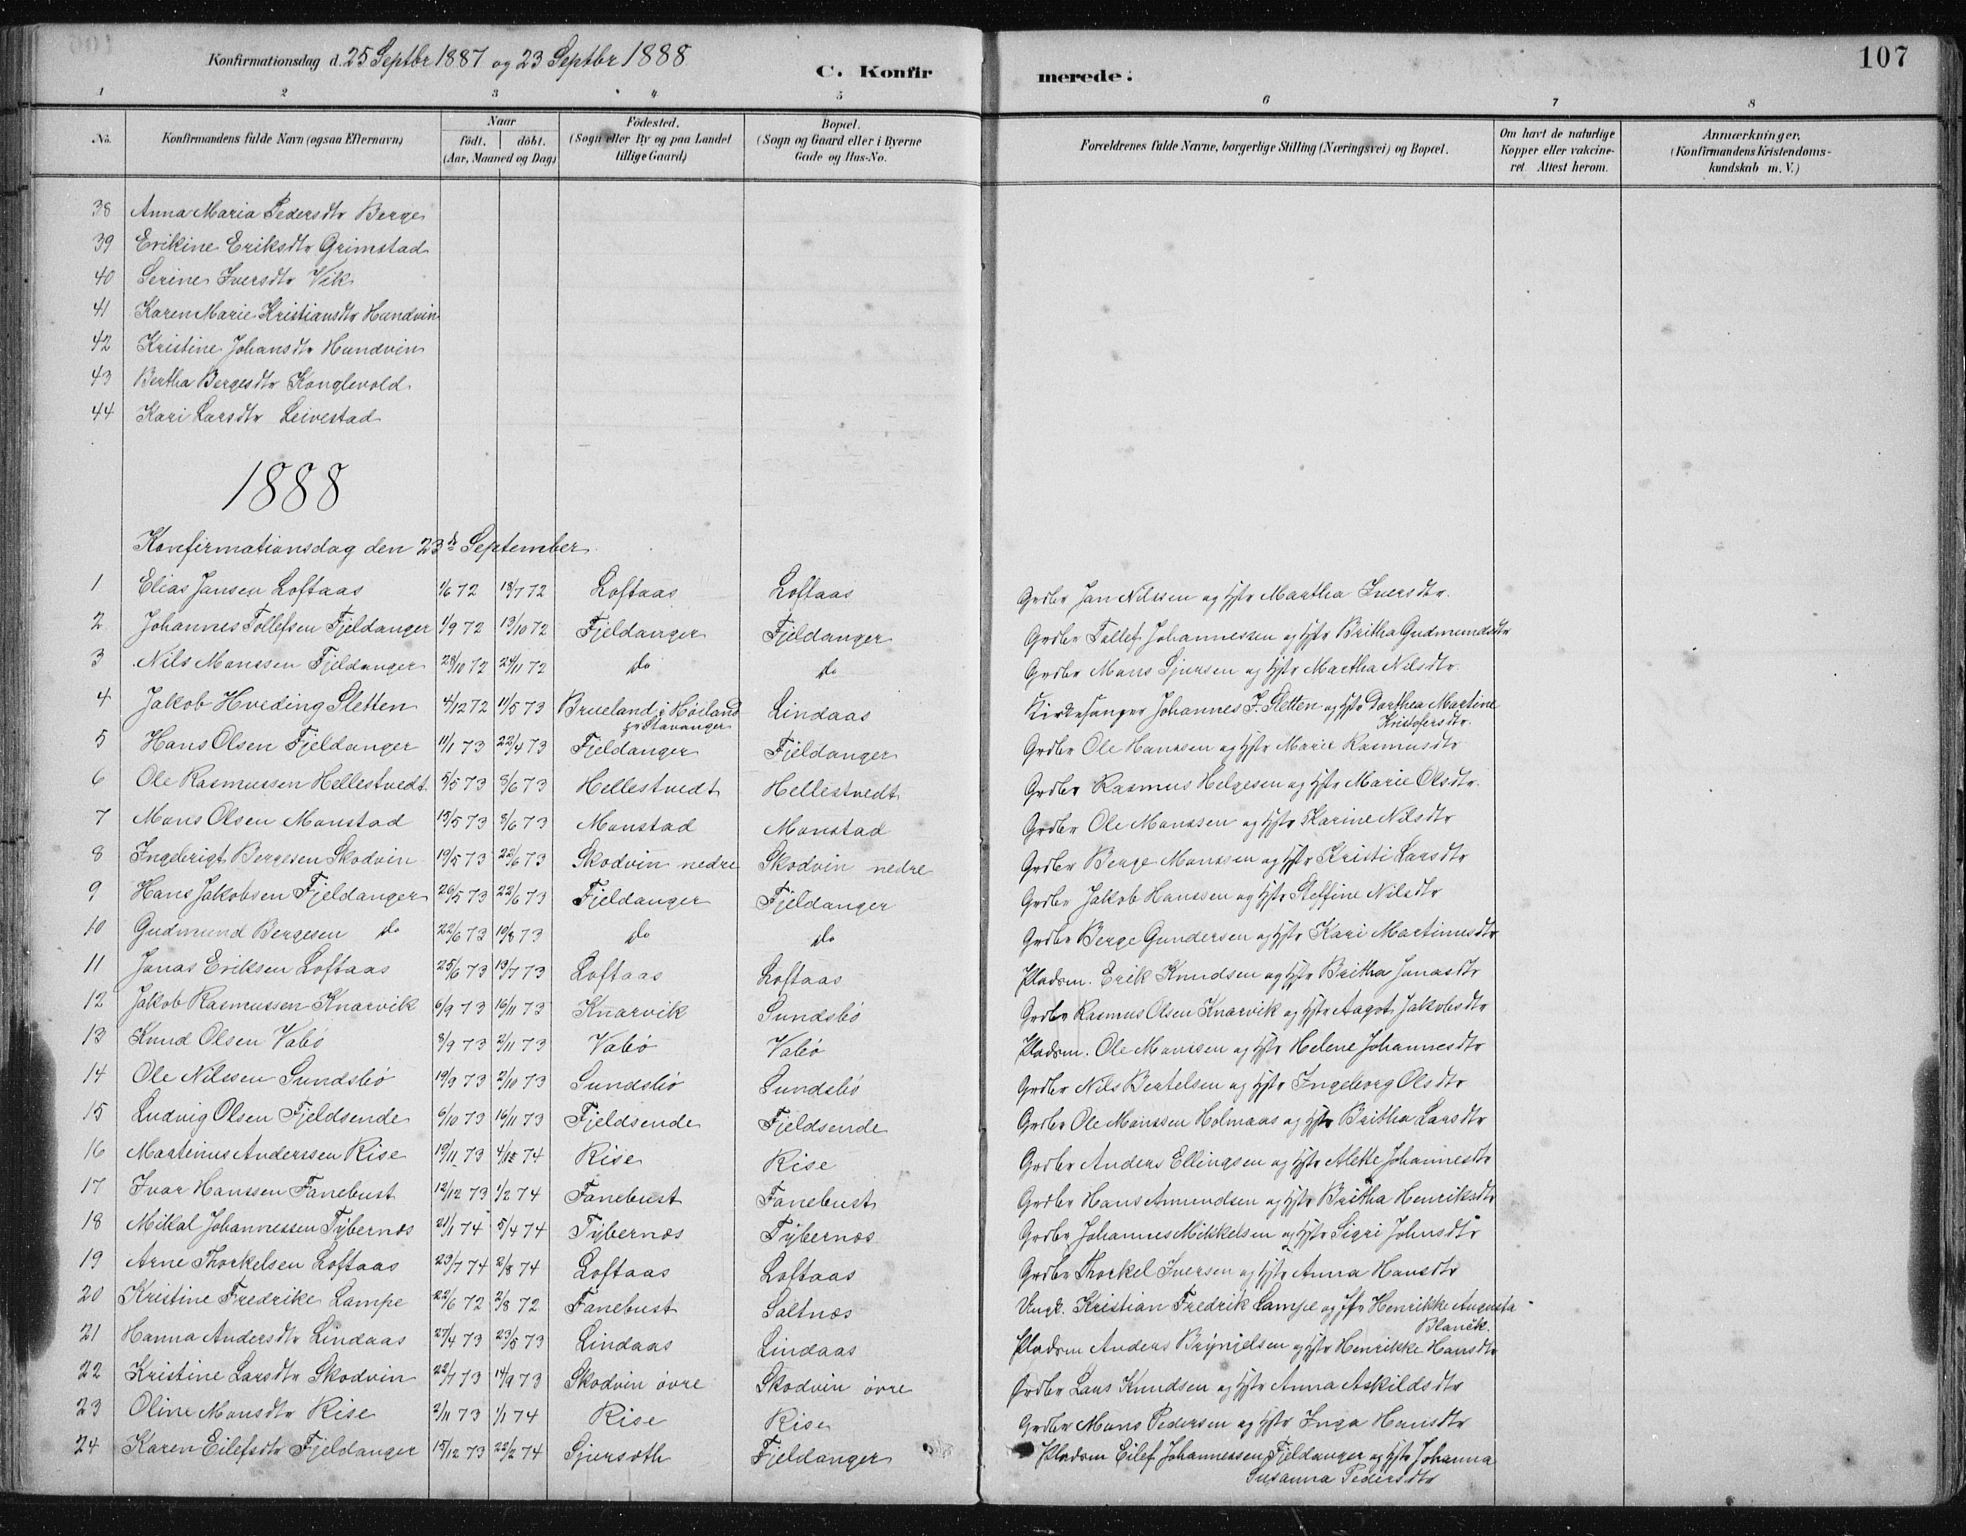 Konfirmationsdag d. 25 Septbr 1887 og 23 Septbr 1888 C. Konfirmerede. 107
1 2 3 4 5 6 7 8
No. Konfirmandens fulde Navn (ogsaa Efternavn) Naar födt. döbt. (Aar, Maaned og Dag) Födested. (Sogn eller By og paa Landet tillige Gaard) Bopæl. (Sogn og Gaard eller i Byerne Gade og Hus-No. Forældrenes fulde Navne, borgerlige Stilling (Næringsvei) og Bopæl. Om havt de naturlige Kopper eller vakcineret. Attest herom. Anmærkninger, (Konfirmandens Kristendomskundskab m. V.)
38 Anna Maria Pedersdtr Berge
39 Erikine Eriksdtr Grimstad
40 Serine Iversdtr Vik
41 Karen Marie Kristiansdtr Hundvin
42 Kristine Johansdtr Hundvin
43 Bertha Bergesdtr Konglevold
44 Kari Larsdtr Leivestad
1888
Konfirmationsdag den 23de September
1 Elias Jansen Loftaas 1/6 72 18/7 72 Loftaas Loftaas Grdbr Jan Nilssen og Hstr Martha Iversdtr.
2 Johannes Tollefsen Fjeldanger 1/9 72 13/10 72 Fjeldanger Fjeldanger Grdbr Tollef Johannessen og Hstr Britha Gudmundsdtr
3 Nils Monssen Fjeldanger 28/10 72 24/11 72 do do Grdbr Mons Sjursen og Hstr Martha Nilsdtr.
4 Jakob Hveding Sletten 4/12 72 11/5 73 Brueland i Høiland pr Stavanger Lindaas Kirkesanger Johannes J. Sletten og Hstr Dorthea Martine Kristofersdtr.
5 Hans Olsen Fjeldanger 11/1 73 22/4 73 Fjeldanger Fjeldanger Grdbr Ole Hanssen og Hstr Marie Rasmusdtr
6 Ole Rasmussen Hellestvedt 5/5 73 8/6 73 Hellestvedt Hellestvedt Grdbr Rasmus Helgesen og Hstr Marie Olsdtr.
7 Mons Olsen Monstad 13/5 73 8/6 73 Monstad Monstad Grdbr Ole Monssen og Hstr Karine Nilsdtr
8 Ingebrigt Bergesen Skodvin 19/5 73 22/6 73 Skodvin nedre Skodvin nedre Grdbr Berge Monssen og Hstr Kristi Larsdtr
9 Hans Jakobsen Fjeldanger 26/5 73 22/6 73 Fjeldanger Fjeldanger Grdbr Jakob Hanssen og Hstr Steffine Nilsdtr
10 Gudmund Bergesen do 22/6 73 10/8 73 do do Grdbr Berge Gundersen og Hstr Kari Martinusdtr
11 Jonas Eriksen Loftaas 25/6 73 13/7 73 Loftaas Loftaas Pladsm. Erik Knudsen og Hstr Britha Jonasdtr
12 Jakob Rasmussen Knarvik 6/9 73 16/11 73 Knarvik Sundsbö Grdbr Rasmus Olsen Knarvik og Hstr Aagot Jakobsdtr
13 Knud Olsen Vabö 8/9 73 2/11 73 Vabö Vabö Pladsm. Ole Monssen og Hstr Helene Johannesdtr
14 Ole Nilssen Sundsbö 19/9 73 2/10 73 Sundsbö Sundsbö Grdbr Nils Bertelsen og Hstr Ingeborg Olsdtr
15 Ludvig Olsen Fjeldsende 6/10 73 16/11 73 Fjeldsende Fjeldsende Grdbr Ole Monssen Holmaas og Hstr Britha Larsdtr
16 Martinus Anderssen Rise 19/11 73 74 Rise Rise Grdbr Anders Ellingsen og Hstr Alette Johannesdtr
17 Ivar Hanssen Fanebust 12/12 73 1/2 74 Fanebust Fanebust Grdbr Hans Amundsen og Hstr Britha Henriksdtr
18 Mikal Johannessen Tybernæs 21/1 74 5/4 74 Tybernæs Tybernæs Grdbr Johannes Mikkelsen og Hstr Sigri Johnsdtr
19 Arne Thorkelsen Loftaas 23/7 74 2/8 74 Loftaas Loftaas Grdbr Thorkel Iversen og Hstr Anna Hansdtr
20 Kristine Fredrike Lampe 22/6 72 2/8 72 Fanebust Saltnæs Kristian Fredrik Lampe og Henrikke Augusta Blanck.
21 Hanna Andersdtr Lindaas 27/4 73 23/5 73 Lindaas Lindaas Pladsm Anders Brynjelsen og Hstr Henrikke Hansdtr
22 Kristine Larsdtr Skodvin 22/7 73 14/9 73 Skodvin övre Skodvin övre Grdbr Lars Knudsen og Hstr Anna Askildsdtr
23 Oline Monsdtr Rise 2/11 73 1/1 74 Rise Rise Grdbr Mons Pedersen og Hstr Inga Hansdtr
24 Karen Eilefsdtr Fjeldanger 15/12 73 22/2 74 Sjursæth Fjeldanger Pladsm Eilef Johannessen Fjeldanger og Hstr Johanna Susanna Pedersdtr